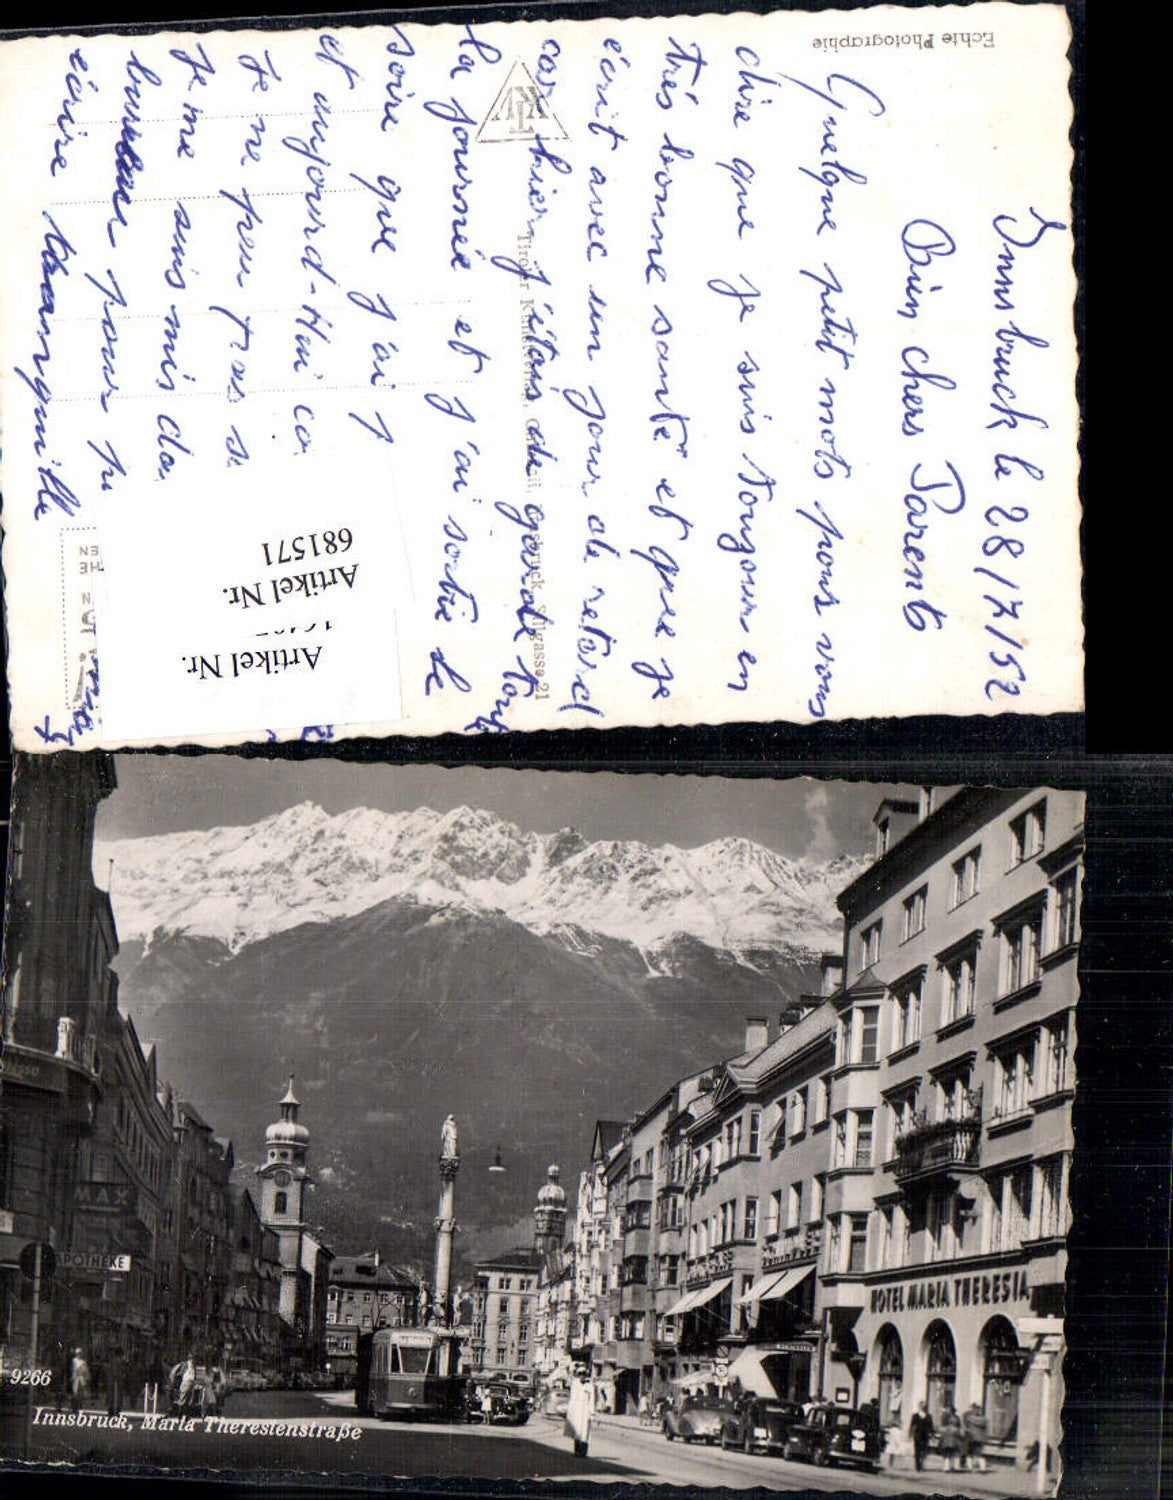 Echte Photographie
Innsbruck le 28/7/52
Bien chers Parents
Quelque petit mots pour vous
dire que je suis toujours en
très bonne santé et que je
écrit avec un jour de retard
car hier j'étais de garde tout
la journée et j'ai sortie de
soire que j'ai
et aujourd-Hui
Je ne peu pas
Je me suis mis
bureau pour
écrire tranquille
Tiroler Kunstverlag, Innsbruck, Sillgasse 21
Artikel Nr.
681571
Artikel Nr.
MAX
APOTHEKE
HOTEL MARIA THERESIA
9266
Innsbruck, Maria Theresienstraße